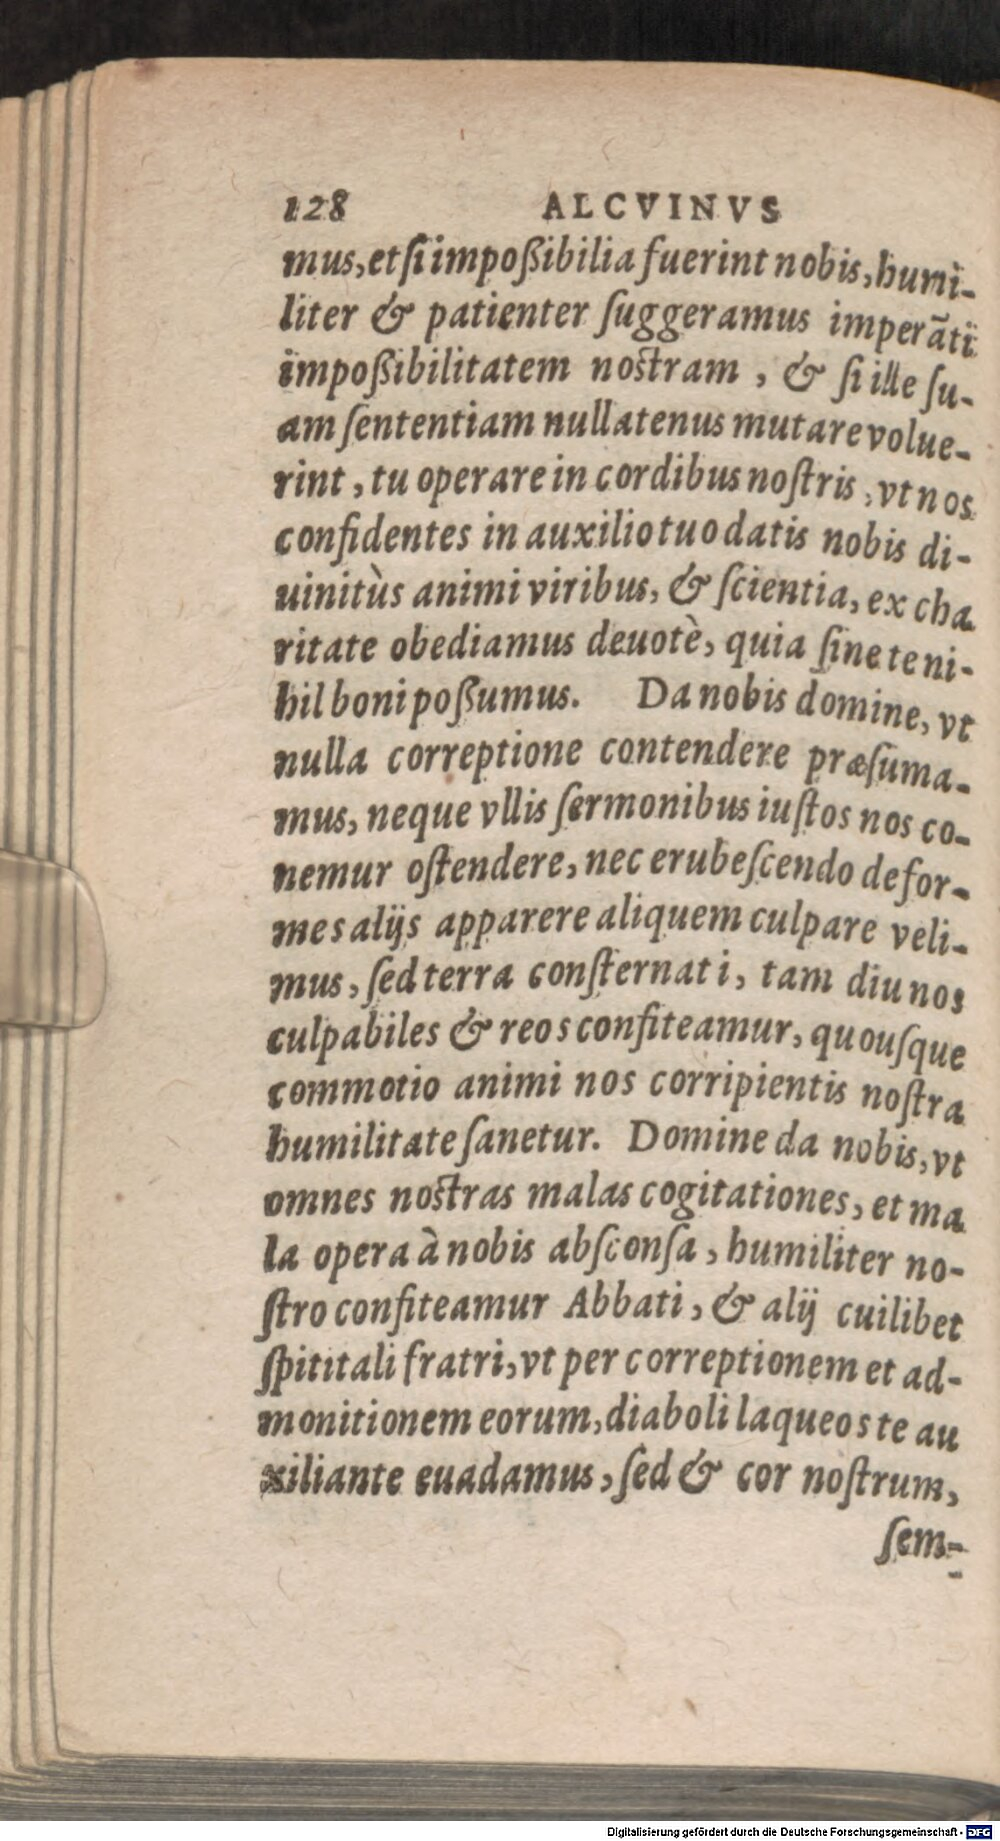 128 ALCVINVS
mus, et si impoßibilia fuerint nobis, humi-
liter & patienter ſuggeramus imperãti
impoßibilitatem noſtram, & ſi ille ſu-
am ſententiam nullatenus mutare volue-
rint, tu operare in cordibus noſtris, vt nos
confidentes in auxilio tuo datis nobis di-
uinitùs animi viribus, & ſcientia, ex cha
ritate obediamus deuotè, quia ſine te ni-
hil boni poßumus. Da nobis domine, vt
nulla correptione contendere præſuma-
mus, neque vllis ſermonibus iuſtos nos co-
nemur oſtendere, nec erubeſcendo defor-
mes alijs apparere aliquem culpare veli-
mus, ſed terra conſternati, tam diu nos
culpabiles & reos confiteamur, quouſque
commotio animi nos corripientis noſtra
humilitate ſanetur. Domine da nobis, vt
omnes noſtras malas cogitationes, et ma
la opera à nobis abſconſa, humiliter no-
ſtro confiteamur Abbati, & alij cuilibet
ſpititali fratri, vt per correptionem et ad-
monitionem eorum, diaboli laqueos te au
xiliante euadamus, ſed & cor noſtrum,
ſem-
Digitalisierung gefördert durch die Deutsche Forschungsgemeinschaft - DFG